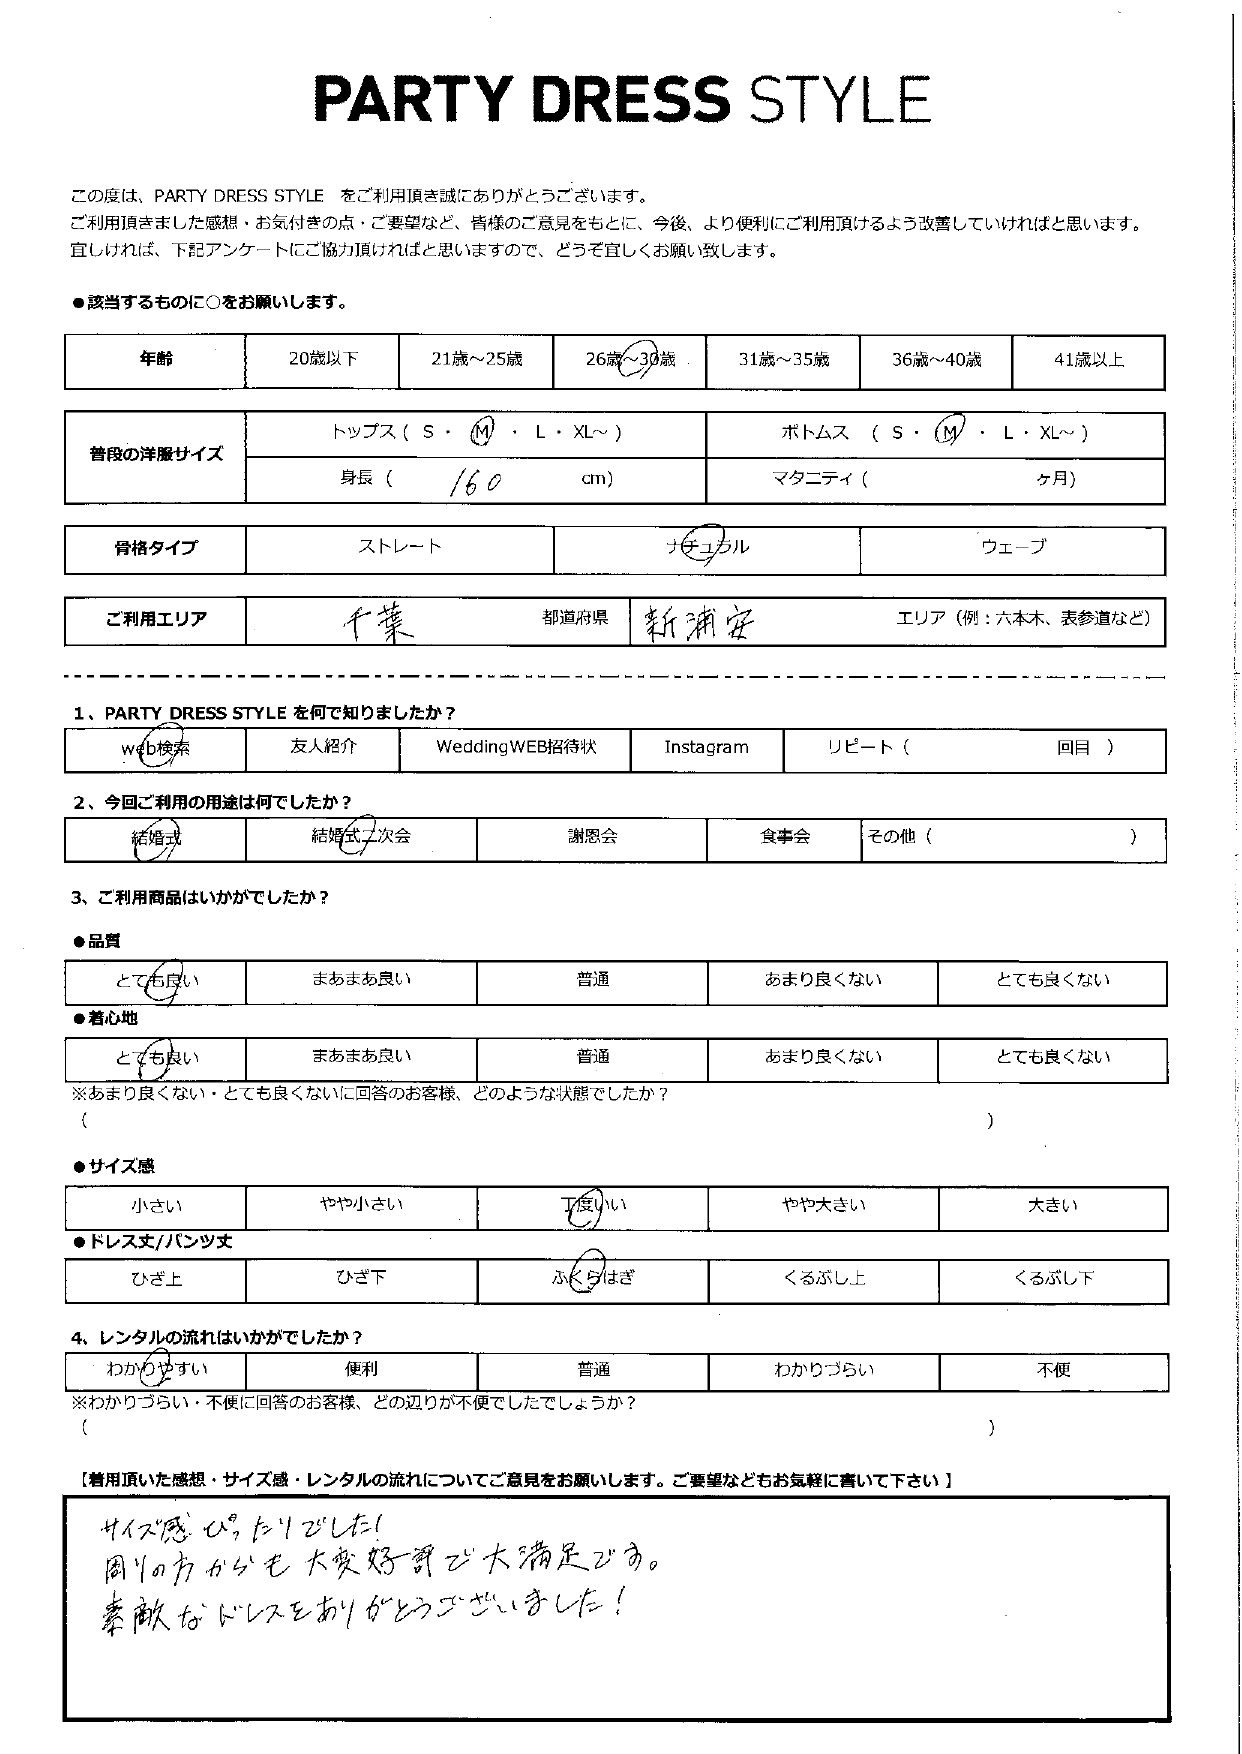 PARTY DRESS STYLE
この度は、PARTY DRESS STYLE をご利用頂き誠にありがとうございます。
ご利用頂きました感想・お気付きの点・ご要望など、皆様のご意見をもとに、今後、より便利にご利用頂けるよう改善していければと思います。
宜しければ、下記アンケートにご協力頂ければと思いますので、どうぞ宜しくお願い致します。
●該当するものに○をお願いします。
年齢 20歳以下 21歳～25歳 26歳～30歳 31歳～35歳 36歳～40歳 41歳以上
普段の洋服サイズ トップス ( S ・ M ・ L ・ XL～ ) ボトムス ( S ・ M ・ L ・ XL～ )
身長 ( 160 cm) マタニティ ( ヶ月)
骨格タイプ ストレート ナチュラル ウェーブ
ご利用エリア 千葉 都道府県 新浦安 エリア（例：六本木、表参道など）
1、PARTY DRESS STYLE を何で知りましたか？
web検索 友人紹介 WeddingWEB招待状 Instagram リピート ( 回目 )
2、今回ご利用の用途は何でしたか？
結婚式 結婚式二次会 謝恩会 食事会 その他 ( )
3、ご利用商品はいかがでしたか？
●品質
とても良い まあまあ良い 普通 あまり良くない とても良くない
●着心地
とても良い まあまあ良い 普通 あまり良くない とても良くない
※あまり良くない・とても良くないに回答のお客様、どのような状態でしたか？
( )
●サイズ感
小さい やや小さい 丁度いい やや大きい 大きい
●ドレス丈/パンツ丈
ひざ上 ひざ下 ふくらはぎ くるぶし上 くるぶし下
4、レンタルの流れはいかがでしたか？
わかりやすい 便利 普通 わかりづらい 不便
※わかりづらい・不便に回答のお客様、どの辺りが不便でしたでしょうか？
( )
【着用頂いた感想・サイズ感・レンタルの流れについてご意見をお願いします。ご要望などもお気軽に書いて下さい】
サイズ感 ぴったりでした!
周りの方からも大変好評で大満足です。
素敵なドレスをありがとうございました!